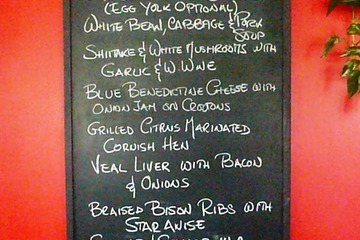 (EGG YOLK OPTIONAL)
WHITE BEAN, CABBAGE & PORK
SOUP
SHIITAKE & WHITE MUSHROOMS WITH
GARLIC & W. WINE
BLUE BENEDICTINE CHEESE WITH
ONION JAM ON CROUTONS
GRILLED CITRUS MARINATED
CORNISH HEN
VEAL LIVER WITH BACON
& ONIONS
BRAISED BISON RIBS WITH
STAR ANISE